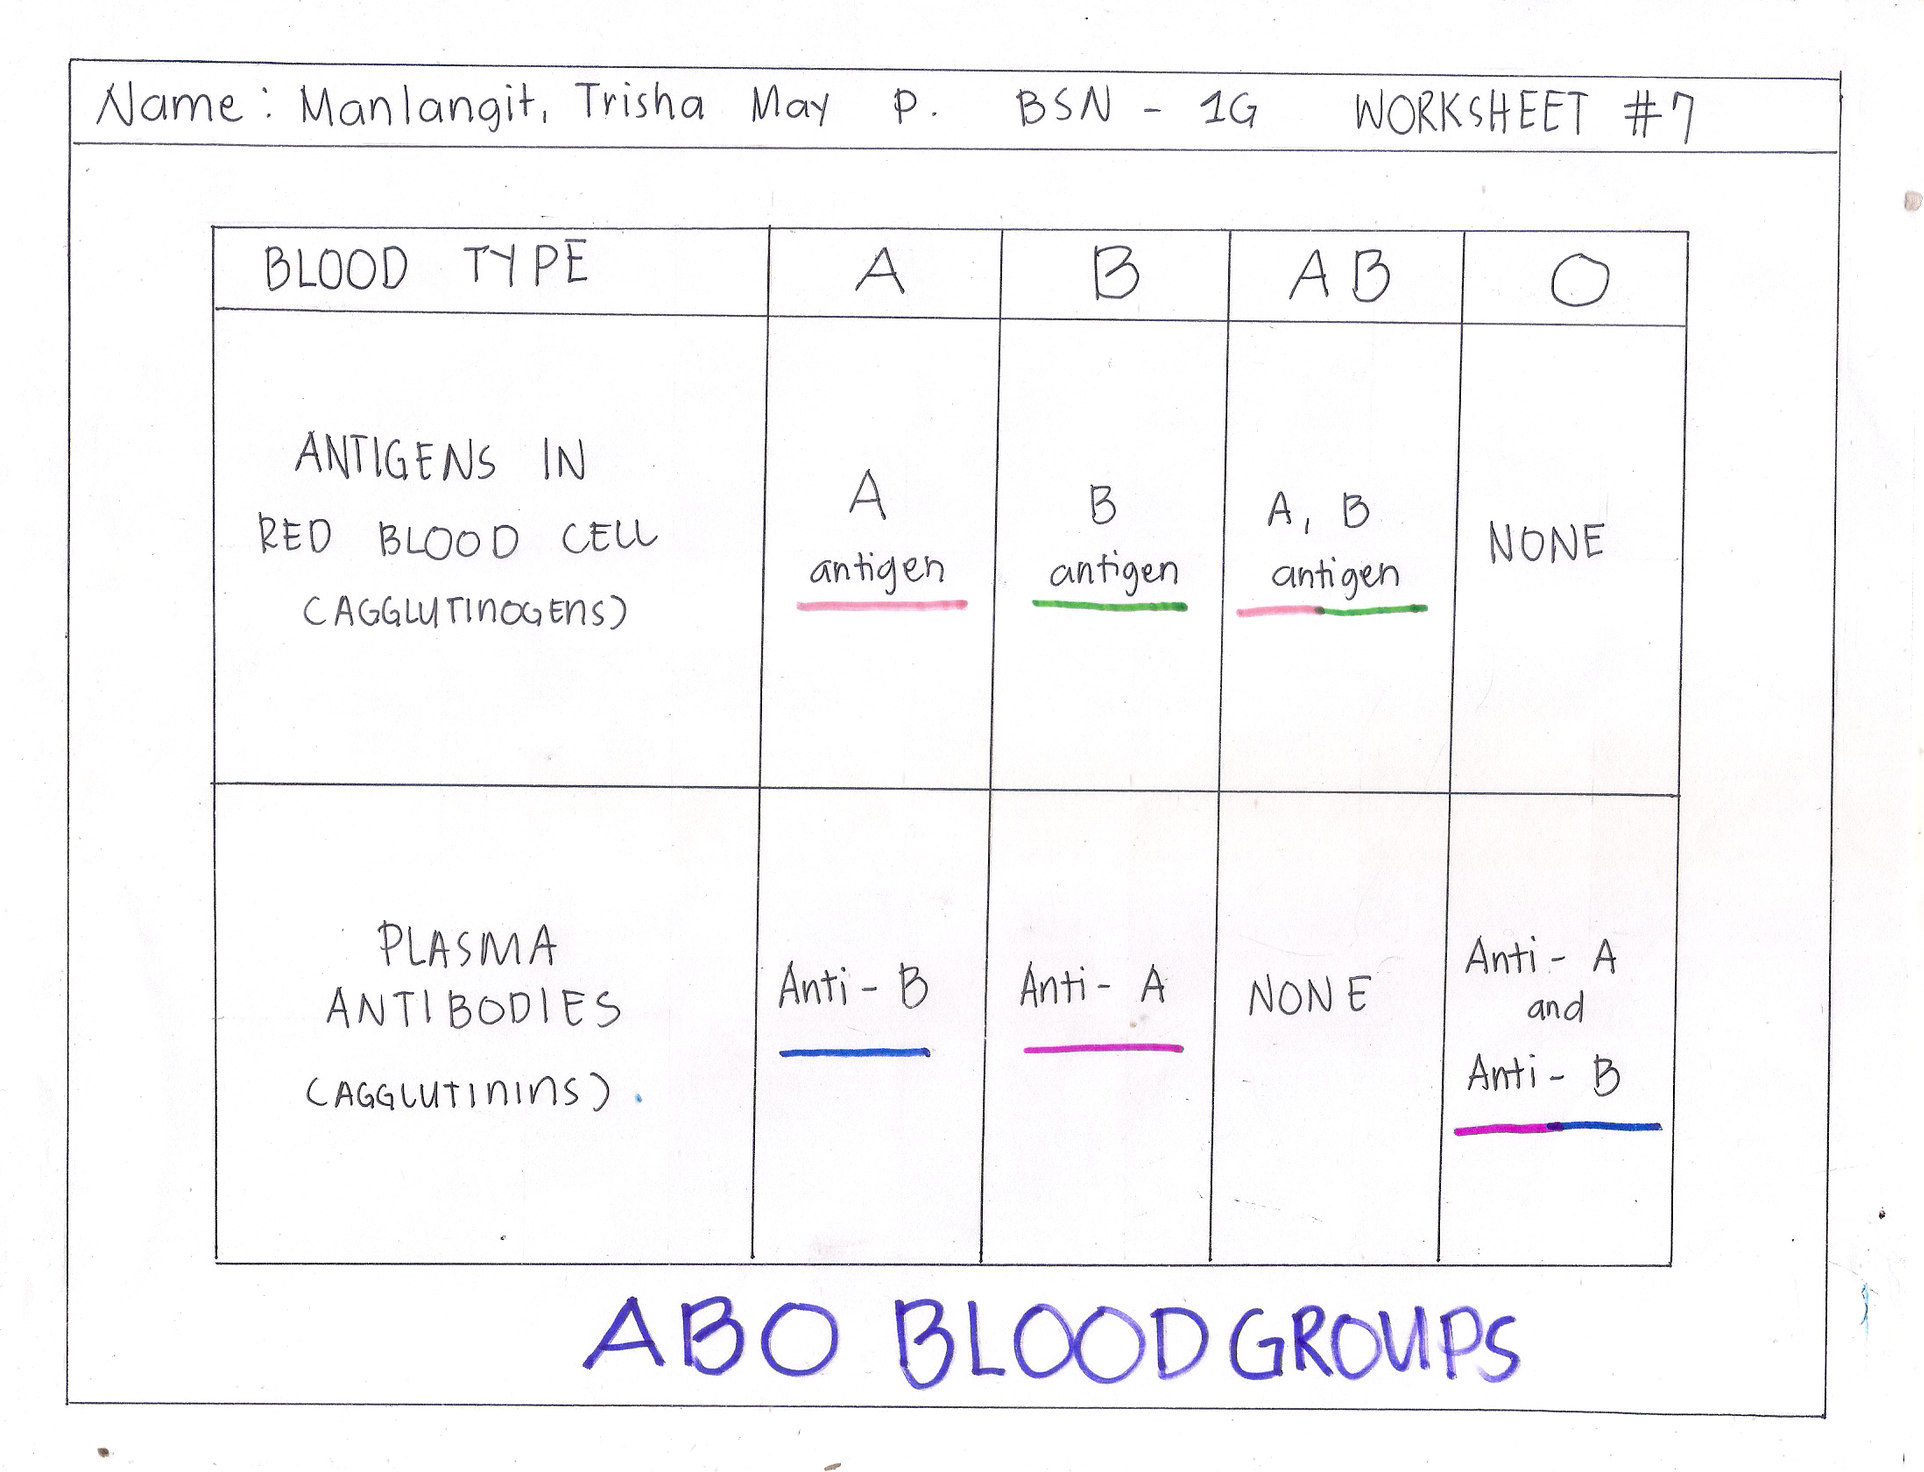 Name: Manlangit, Trisha May P. BSN - 1G WORKSHEET #7
BLOOD TYPE A B AB O
ANTIGENS IN
RED BLOOD CELL
(AGGLUTINOGENS)
A
antigen
B
antigen
A, B
antigen
NONE
PLASMA
ANTIBODIES
(AGGLUTININS).
Anti - B
Anti - A
NONE
Anti - A
and
Anti - B
ABO BLOOD GROUPS